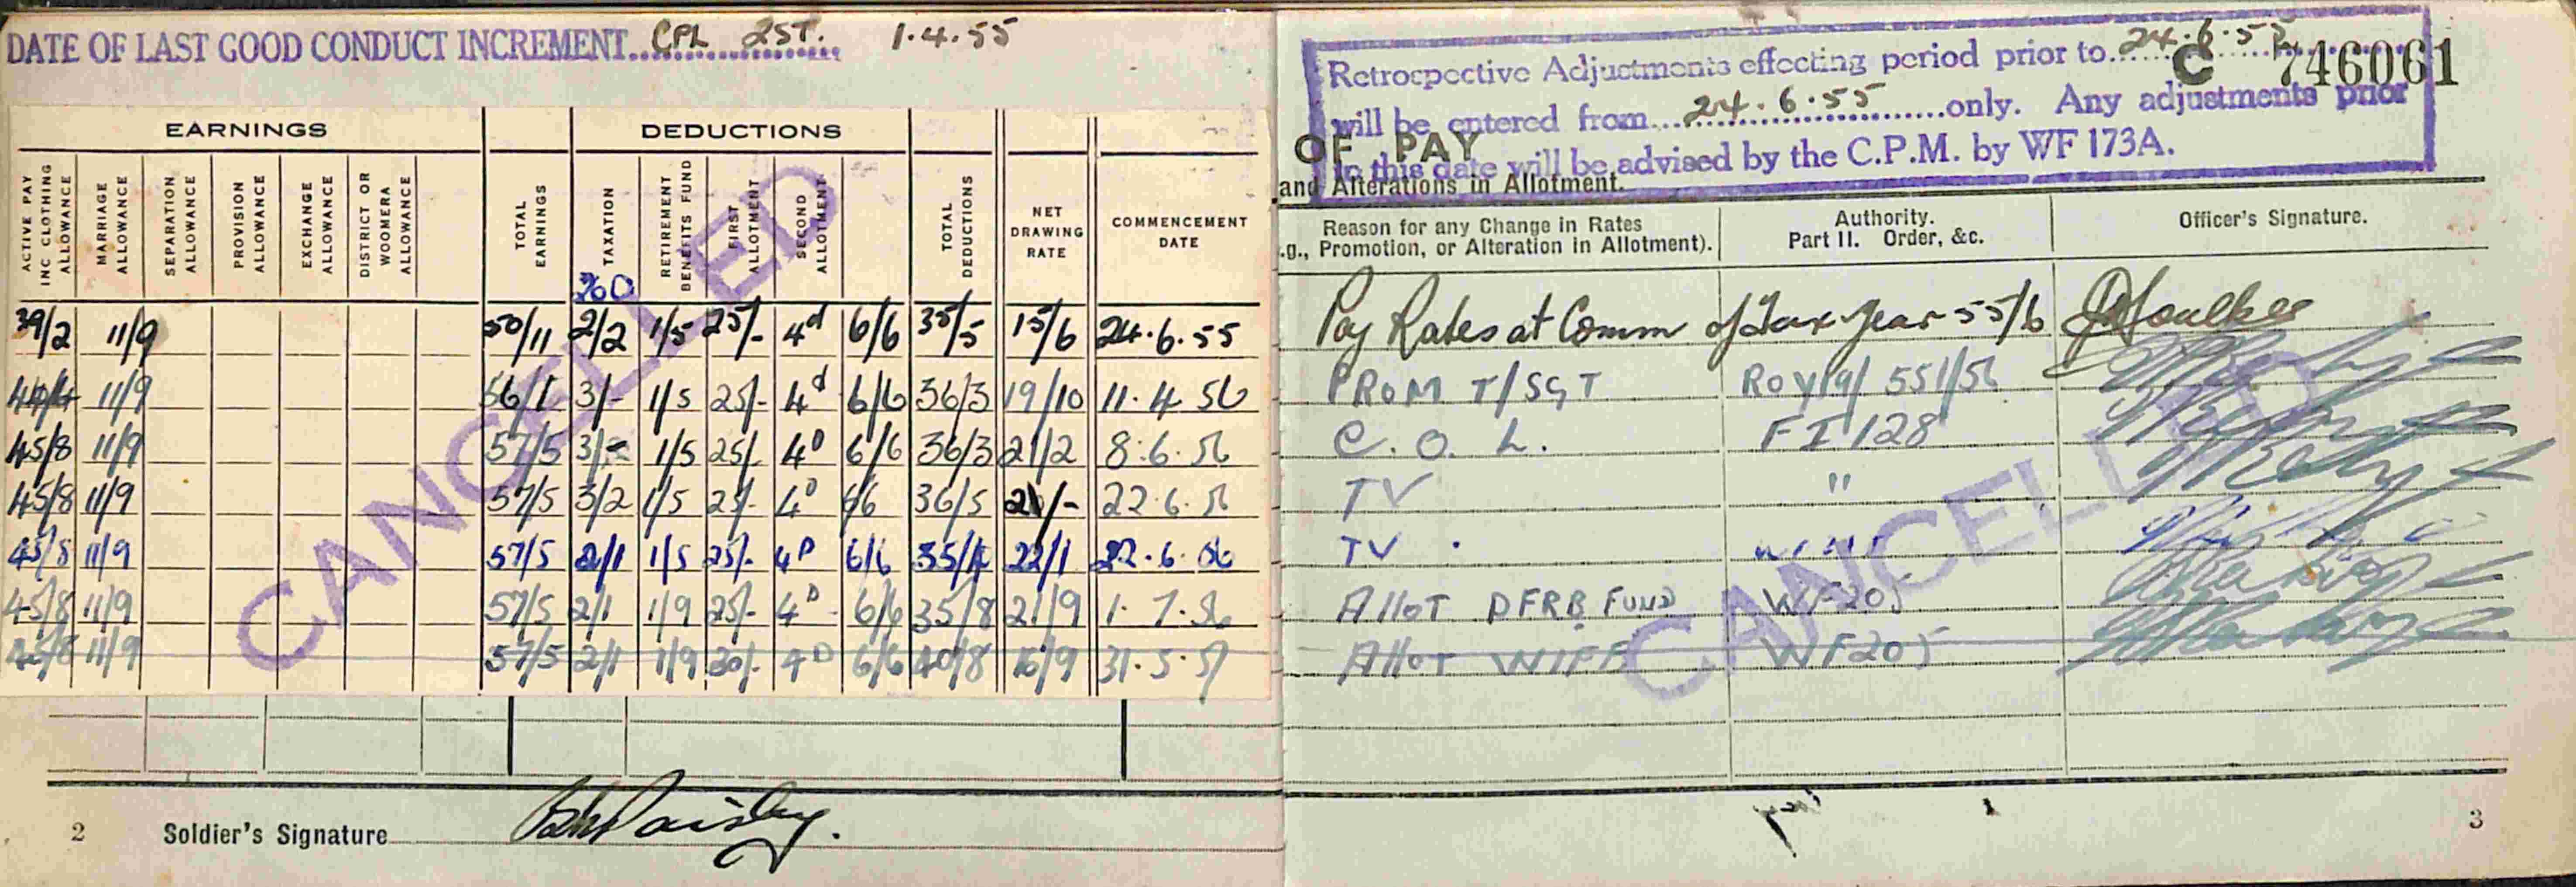 DATE OF LAST GOOD CONDUCT INCREMENT CPL 2ST. 1.4.55
EARNINGS DEDUCTIONS
ACTIVE PAY INC CLOTHING ALLOWANCE
MARRIAGE ALLOWANCE
SEPARATION ALLOWANCE
PROVISION ALLOWANCE
EXCHANGE ALLOWANCE
DISTRICT OR WOOMERA ALLOWANCE
TOTAL EARNINGS
TAXATION
RETIREMENT BENEFITS FUND
FIRST ALLOTMENT
SECOND ALLOTMENT
TOTAL DEDUCTIONS
NET DRAWING RATE
COMMENCEMENT DATE
39/2 11/9 50/11 2/2 1/5 25/- 4d 6/6 35/5 15/6 24.6.55
44/4 11/9 56/1 3/- 1/5 25/- 4d 6/6 36/3 19/10 11.4.56
45/8 11/9 57/5 3/- 1/5 25/- 4D 6/6 36/3 21/2 8.6.56
45/8 11/9 57/5 3/2 1/5 25/- 4D 6/6 36/5 21/- 22.6.56
45/8 11/9 57/5 2/1 1/5 25/- 4D 6/6 35/4 22/1 22.6.56
45/8 11/9 57/5 2/1 1/9 25/- 4D 6/6 35/8 21/9 1.7.56
45/8 11/9 57/5 2/1 1/9 30/- 4D 6/6 40/8 16/9 31.5.57
CANCELLED
2 Soldier's Signature
C 746061
Retrospective Adjustments effecting period prior to 24.6.55
will be entered from 24.6.55 only. Any adjustments prior
to this date will be advised by the C.P.M. by WF 173A.
OF PAY
and Alterations in Allotment.
Reason for any Change in Rates
.g., Promotion, or Alteration in Allotment).
Authority.
Part II. Order, &c.
Officer's Signature.
Pay Rates at Comm of Tax Year 55/6
PROM T/SGT 551/56
C. O. L. FI 128
TV "
TV
Allot DFRB FUND WF205
Allot WIFE WF205
CANCELLED
3